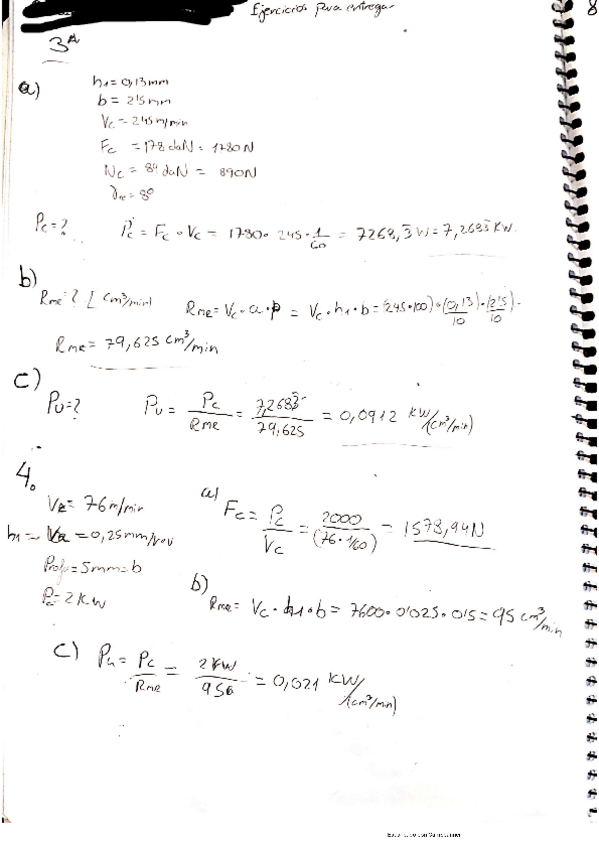 Ejercicios para entregar
8
3ª
a)
h1 = 0,13 mm
b = 2'5 mm
Vc = 245 m/min
Fc = 178 daN = 1780 N
Nc = 89 daN = 890 N
= 8º
Pc = ? Pc = Fc · Vc = 1780 · 245 · 1/60 = 7268,3 W = 7,2683 KW
b)
Rme = ? [cm³/min] Rme = Vc · a · p = Vc · h1 · b = (245·100) · (0,13/10) · (2'5/10) =
Rme = 79,625 cm³/min
c)
Pu = ? Pu = Pc/Rme = 7,2683/79,625 = 0,0912 KW/(cm³/min)
4.
Vc = 76 m/min
h1 = = 0,25 mm/rev
Prof = 5mm = b
Pc = 2 KW
a) Fc = Pc/Vc = 2000/(76 · 1/60) = 1578,94 N
b) Rme = Vc · h1 · b = 7600 · 0'025 · 0'5 = 95 cm³/min
c) Pu = Pc/Rme = 2KW/95 = 0,021 KW/(cm³/min)